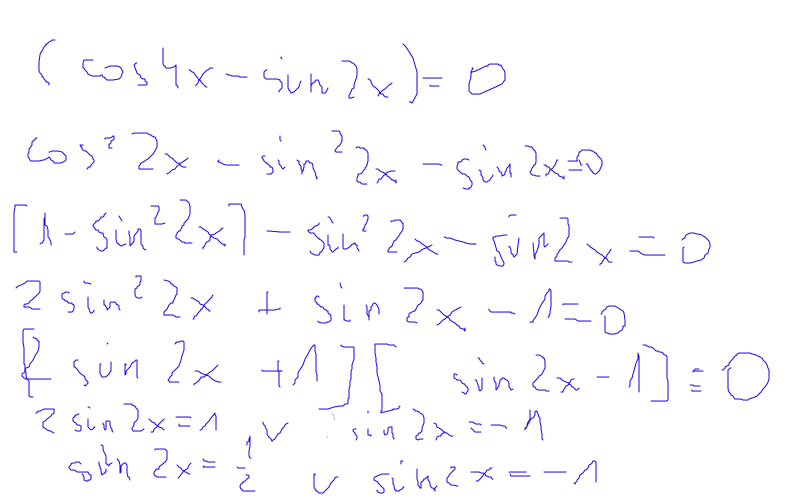 (cos4x - sin2x) = 0
cos² 2x - sin² 2x - sin2x=0
[1 - sin² 2x] - sin² 2x - sin2x = 0
2 sin² 2x + sin 2x - 1 = 0
[2 sin 2x + 1] [ sin 2x - 1] = 0
2 sin 2x = 1 ∨ sin 2x = -1
sin 2x = 1/2 ∨ sin 2x = -1